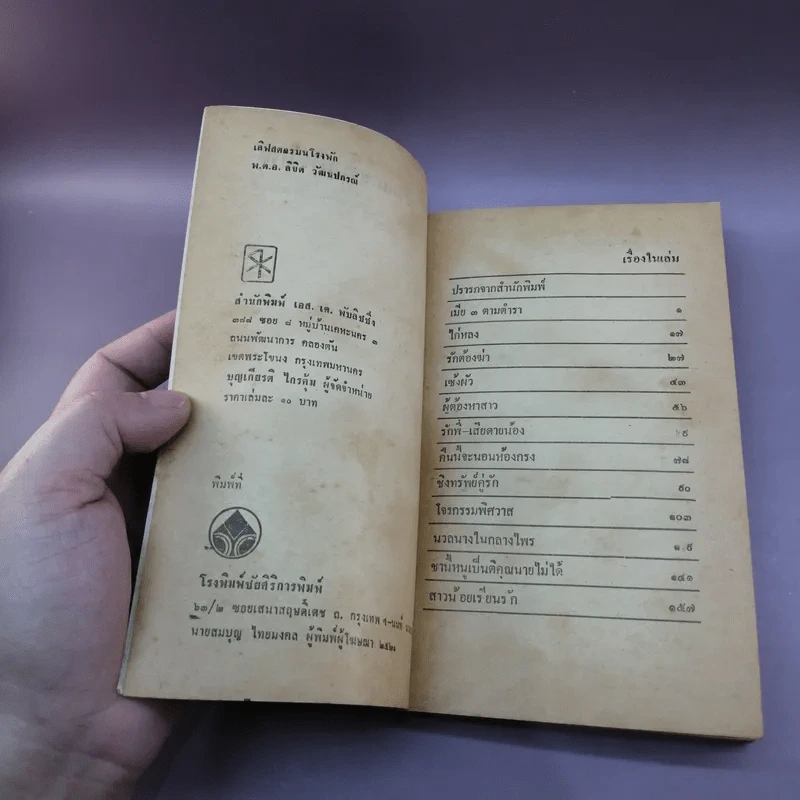 เลิฟสตอรี่บนโรงพัก
พ.ต.อ. ลิขิต วัฒนปกรณ์
สำนักพิมพ์ เอส. เค. พับลิชชิ่ง
๓๗๘ ซอย ๘ หมู่บ้านเคหะนคร ๑
ถนนพัฒนาการ คลองตัน
เขตพระโขนง กรุงเทพมหานคร
บุญเกียรติ ไกรคุ้ม ผู้จัดจำหน่าย
ราคาเล่มละ ๑๐ บาท
พิมพ์ที่
โรงพิมพ์ชัยศิริการพิมพ์
๖๓/๒ ซอยเสนาสฤษดิ์เดช ถ. กรุงเทพฯ-นนท์
นายสมบุญ ไทยมงคล ผู้พิมพ์ผู้โฆษณา
เรื่องในเล่ม
ปรารภจากสำนักพิมพ์
เมีย ๓ ตามตำรา ๑
ไก่หลง ๑๗
รักต้องฆ่า ๒๗
เซ้งผัว ๔๓
ผู้ต้องหาสาว ๕๖
รักพี่-เสียดายน้อง
คืนนี้จะนอนห้องกรง ๗๘
ชิงทรัพย์คู่รัก ๙๐
โจรกรรมพิศวาส ๑๐๓
นวลนางในกลางไพร
ชานี้หนูเป็นติคุณนายไม่ได้ ๑๔๑
สาวน้อยเรียนรัก ๑๕๗